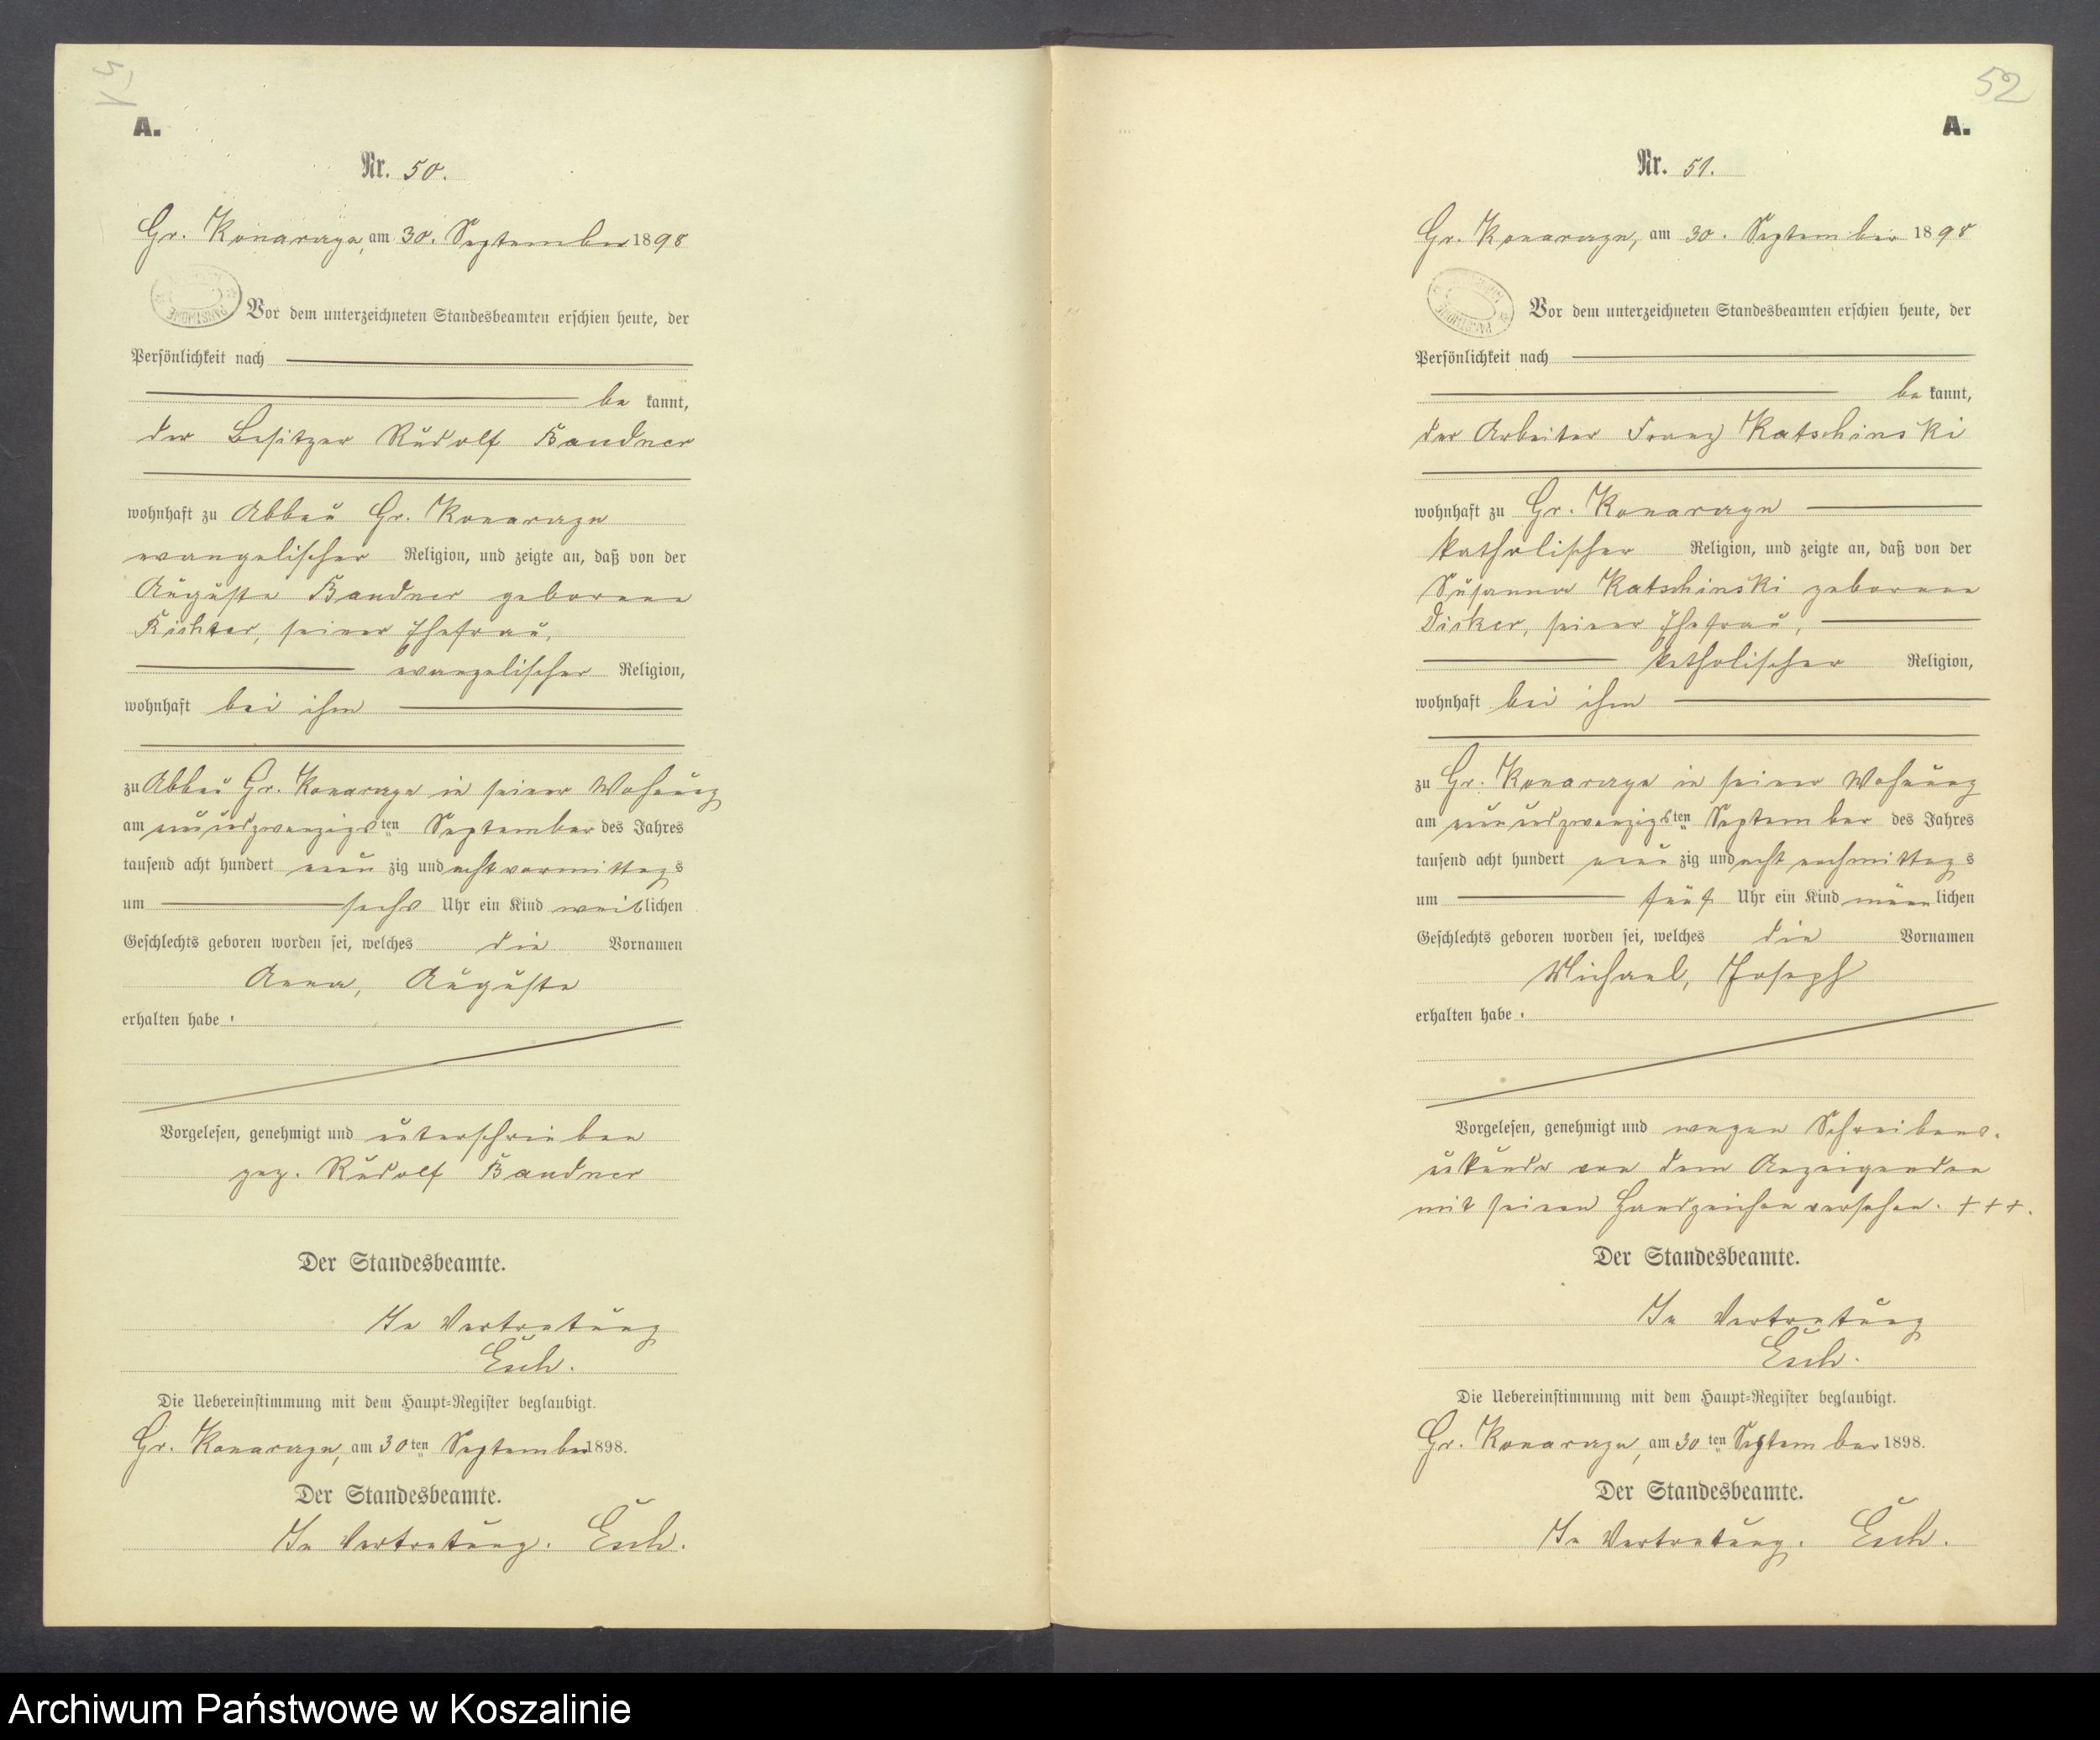 51
A.
Nr. 50.
Gr. Konarczyn, am 30. September 1898
Vor dem unterzeichneten Standesbeamten erschien heute, der
Persönlichkeit nach
be kannt,
der Besitzer Rudolf Bandner
wohnhaft zu Abbau Gr. Konarczyn
evangelischer Religion, und zeigte an, daß von der
Auguste Bandner geborene
Richter, seiner Ehefrau,
evangelischer Religion,
wohnhaft bei ihm
zu Abbau Gr. Konarczyn in seiner Wohnung
am neunundzwanzigsten September des Jahres
tausend acht hundert neun zig und acht vormittags
um sechs Uhr ein Kind weiblichen
Geschlechts geboren worden sei, welches die Vornamen
Anna, Auguste
erhalten habe.
Vorgelesen, genehmigt und unterschrieben
gez. Rudolf Bandner
Der Standesbeamte.
In Vertretung
Esch.
Die Uebereinstimmung mit dem Haupt-Register beglaubigt.
Gr. Konarczyn, am 30ten September 1898.
Der Standesbeamte.
In Vertretung. Esch.
52
A.
Nr. 51.
Gr. Konarczyn, am 30. September 1898
Vor dem unterzeichneten Standesbeamten erschien heute, der
Persönlichkeit nach
be kannt,
der Arbeiter Franz Katschinski
wohnhaft zu Gr. Konarczyn
katholischer Religion, und zeigte an, daß von der
Susanna Katschinski geborene
Disker, seiner Ehefrau,
katholischer Religion,
wohnhaft bei ihm
zu Gr. Konarczyn in seiner Wohnung
am neunundzwanzigsten September des Jahres
tausend acht hundert neun zig und acht nachmittags
um fünf Uhr ein Kind männlichen
Geschlechts geboren worden sei, welches die Vornamen
Michael, Joseph
erhalten habe.
Vorgelesen, genehmigt und wegen Schreibens-
unkunde von dem Anzeigenden
mit seinen Handzeichen versehen. + + +.
Der Standesbeamte.
In Vertretung
Esch.
Die Uebereinstimmung mit dem Haupt-Register beglaubigt.
Gr. Konarczyn, am 30ten September 1898.
Der Standesbeamte.
In Vertretung. Esch.
Archiwum Państwowe w Koszalinie